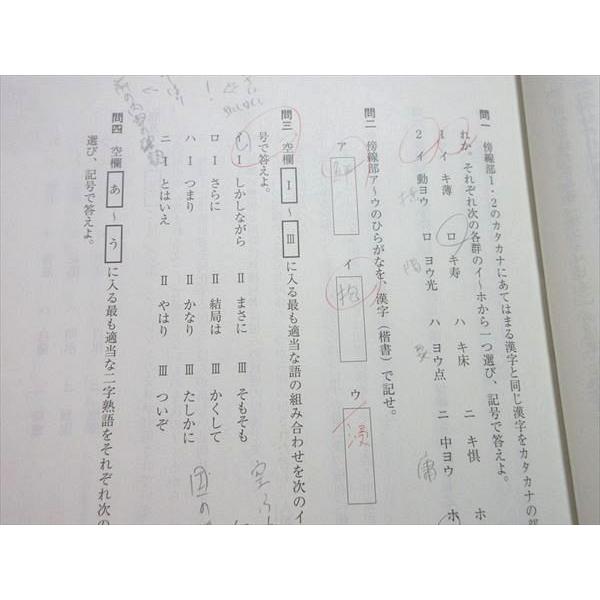 問一 傍線部1・2のカタカナにあてはまる漢字と同じ漢字をカタカナの部
れか。それぞれ次の各群のイ〜ホから一つ選び、記号で答えよ。
1 イ キ薄 ロ キ寿 ハ キ床 ニ キ惧 ホ
2 イ 動ヨウ ロ ヨウ光 ハ ヨウ点 ニ 中ヨウ ホ
揺 陽 要 庸
問二 傍線部ア〜ウのひらがなを、漢字（楷書）で記せ。
ア イ 抱 ウ 浸
問三 空欄 Ⅰ 〜 Ⅲ に入る最も適当な語の組み合わせを次のイ
号で答えよ。
イ Ⅰ しかしながら Ⅱ まさに Ⅲ そもそも
ロ Ⅰ さらに Ⅱ 結局は Ⅲ かくして
ハ Ⅰ つまり Ⅱ かなり Ⅲ たしかに
ニ Ⅰ とはいえ Ⅱ やはり Ⅲ ついぞ
問四 空欄 あ 〜 う に入る最も適当な二字熟語をそれぞれ次の
選び、記号で答えよ。